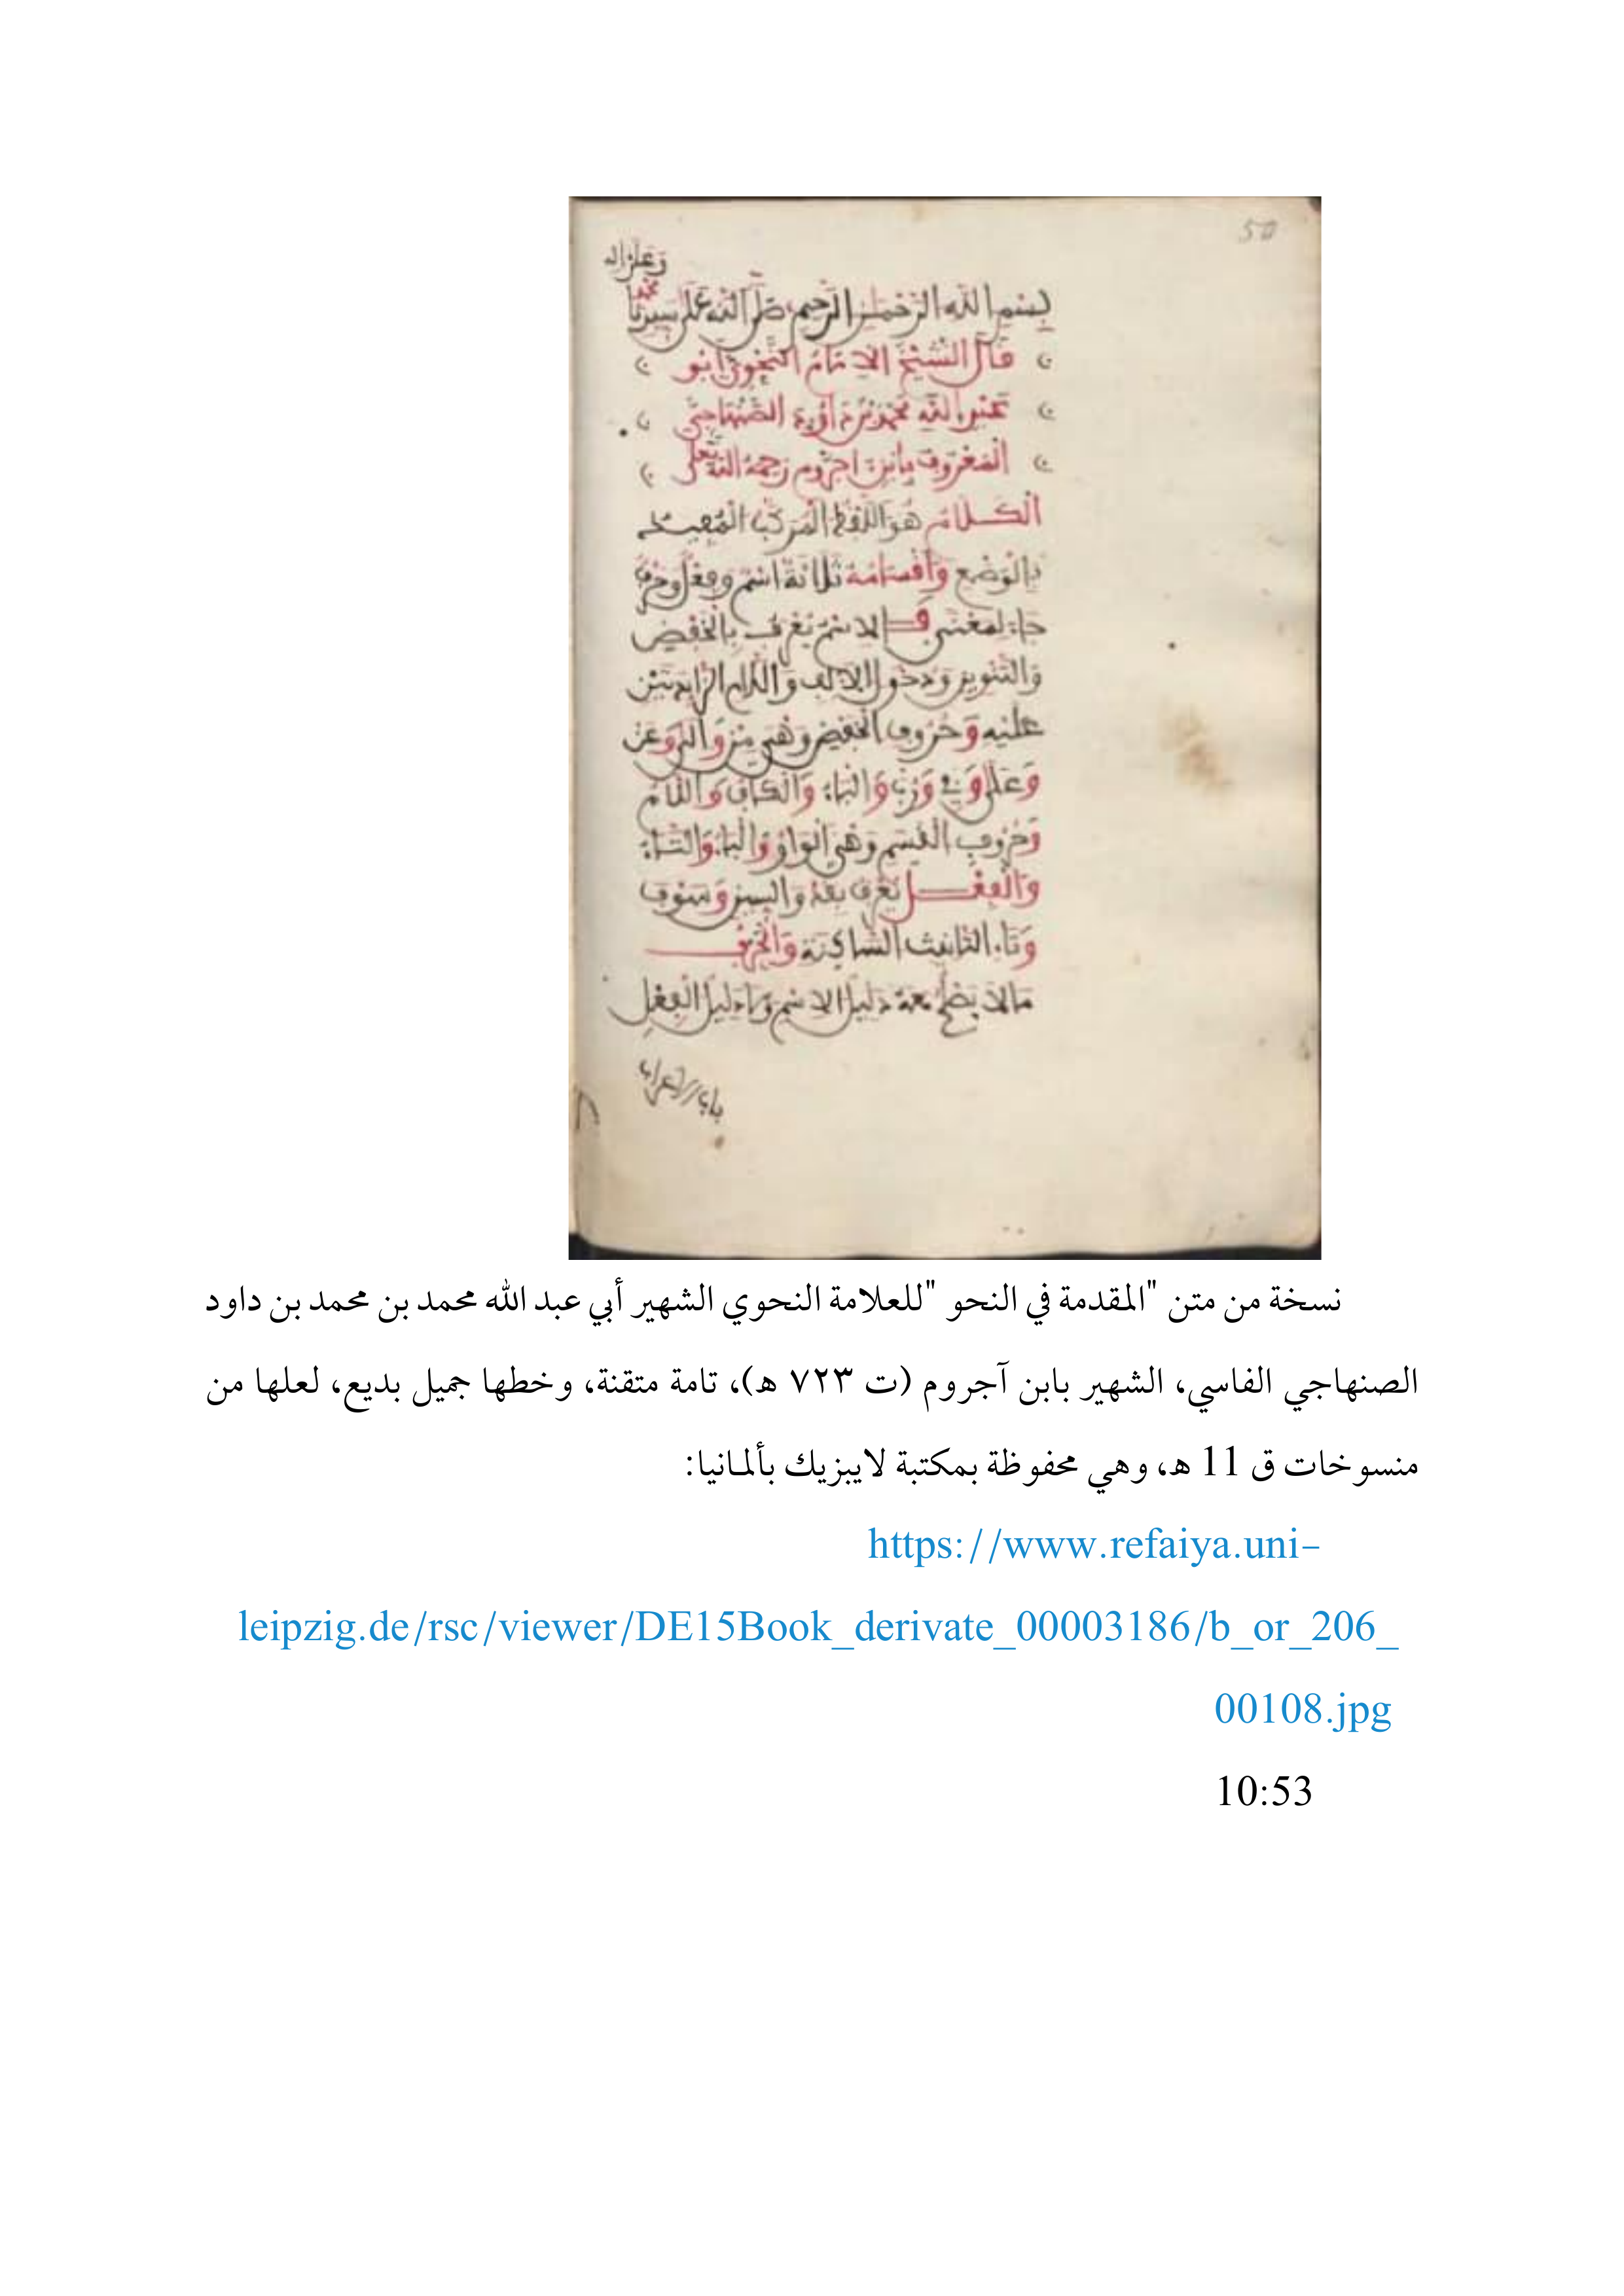 50
وعلى اله
بسم الله الرحمن الرحيم صلى الله على سيدنا محمد
قال الشيخ الامام النحوي ابو
عبد الله محمد بن داوود الصنهاجي
المعروف بابن اجروم رحمه الله تعلى
الكلام هو اللفظ المركب المفيد
بالوضع وأقسامه ثلاثة اسم وفعل وحرف
جاء لمعنى فالاسم يعرف بالخفض
والتنوين ودخول الالف واللام الزايدتين
عليه وحروف الخفض وهي من والى وعن
وعلى وفي ورب والباء والكاف واللام
وحروف القسم وهي الواو والباء والتاء
والفعل يعرف بقد والسين وسوف
وتاء التانيث الساكنة والحرف
ما لا يصلح معه دليل الاسم ولا دليل الفعل
باب الاعراب
نسخة من متن "المقدمة في النحو "للعلامة النحوي الشهير أبي عبد الله محمد بن محمد بن داود
الصنهاجي الفاسي، الشهير بابن آجروم (ت ٧٢٣ ه)، تامة متقنة، وخطها جميل بديع، لعلها من
منسوخات ق 11 ه، وهي محفوظة بمكتبة لايبزيك بألمانيا:
https://www.refaiya.uni-
leipzig.de/rsc/viewer/DE15Book_derivate_00003186/b_or_206_
00108.jpg
10:53